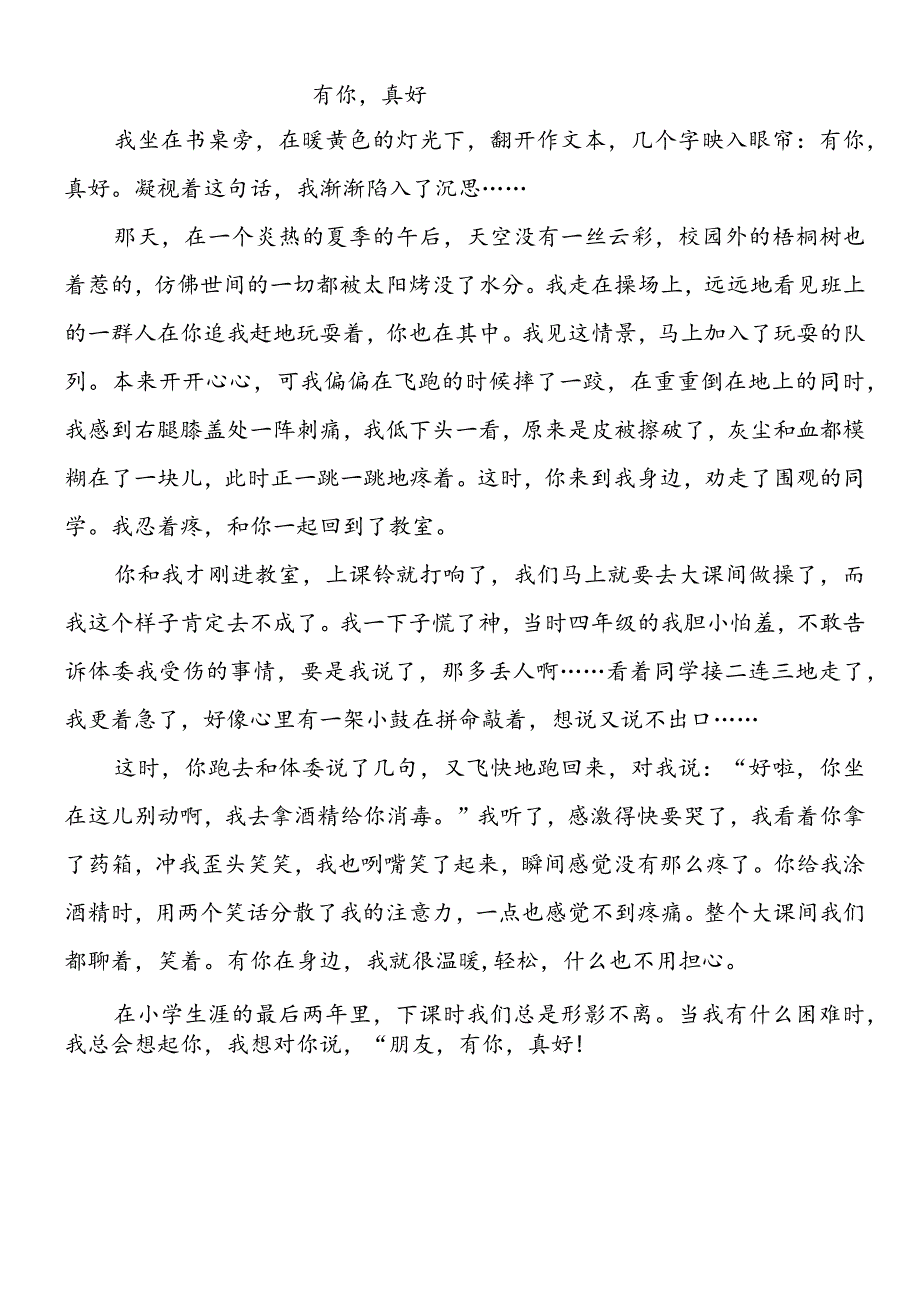 有你，真好
我坐在书桌旁，在暖黄色的灯光下，翻开作文本，几个字映入眼帘：有你，
真好。凝视着这句话，我渐渐陷入了沉思……
那天，在一个炎热的夏季的午后，天空没有一丝云彩，校园外的梧桐树也
着惹的，仿佛世间的一切都被太阳烤没了水分。我走在操场上，远远地看见班上
的一群人在你追我赶地玩耍着，你也在其中。我见这情景，马上加入了玩耍的队
列。本来开开心心，可我偏偏在飞跑的时候摔了一跤，在重重倒在地上的同时，
我感到右腿膝盖处一阵刺痛，我低下头一看，原来是皮被擦破了，灰尘和血都模
糊在了一块儿，此时正一跳一跳地疼着。这时，你来到我身边，劝走了围观的同
学。我忍着疼，和你一起回到了教室。
你和我才刚进教室，上课铃就打响了，我们马上就要去大课间做操了，而
我这个样子肯定去不成了。我一下子慌了神，当时四年级的我胆小怕羞，不敢告
诉体委我受伤的事情，要是我说了，那多丢人啊……看着同学接二连三地走了，
我更着急了，好像心里有一架小鼓在拼命敲着，想说又说不出口……
这时，你跑去和体委说了几句，又飞快地跑回来，对我说：“好啦，你坐
在这儿别动啊，我去拿酒精给你消毒。”我听了，感激得快要哭了，我看着你拿
了药箱，冲我歪头笑笑，我也咧嘴笑了起来，瞬间感觉没有那么疼了。你给我涂
酒精时，用两个笑话分散了我的注意力，一点也感觉不到疼痛。整个大课间我们
都聊着，笑着。有你在身边，我就很温暖,轻松，什么也不用担心。
在小学生涯的最后两年里，下课时我们总是形影不离。当我有什么困难时，
我总会想起你，我想对你说，“朋友，有你，真好！